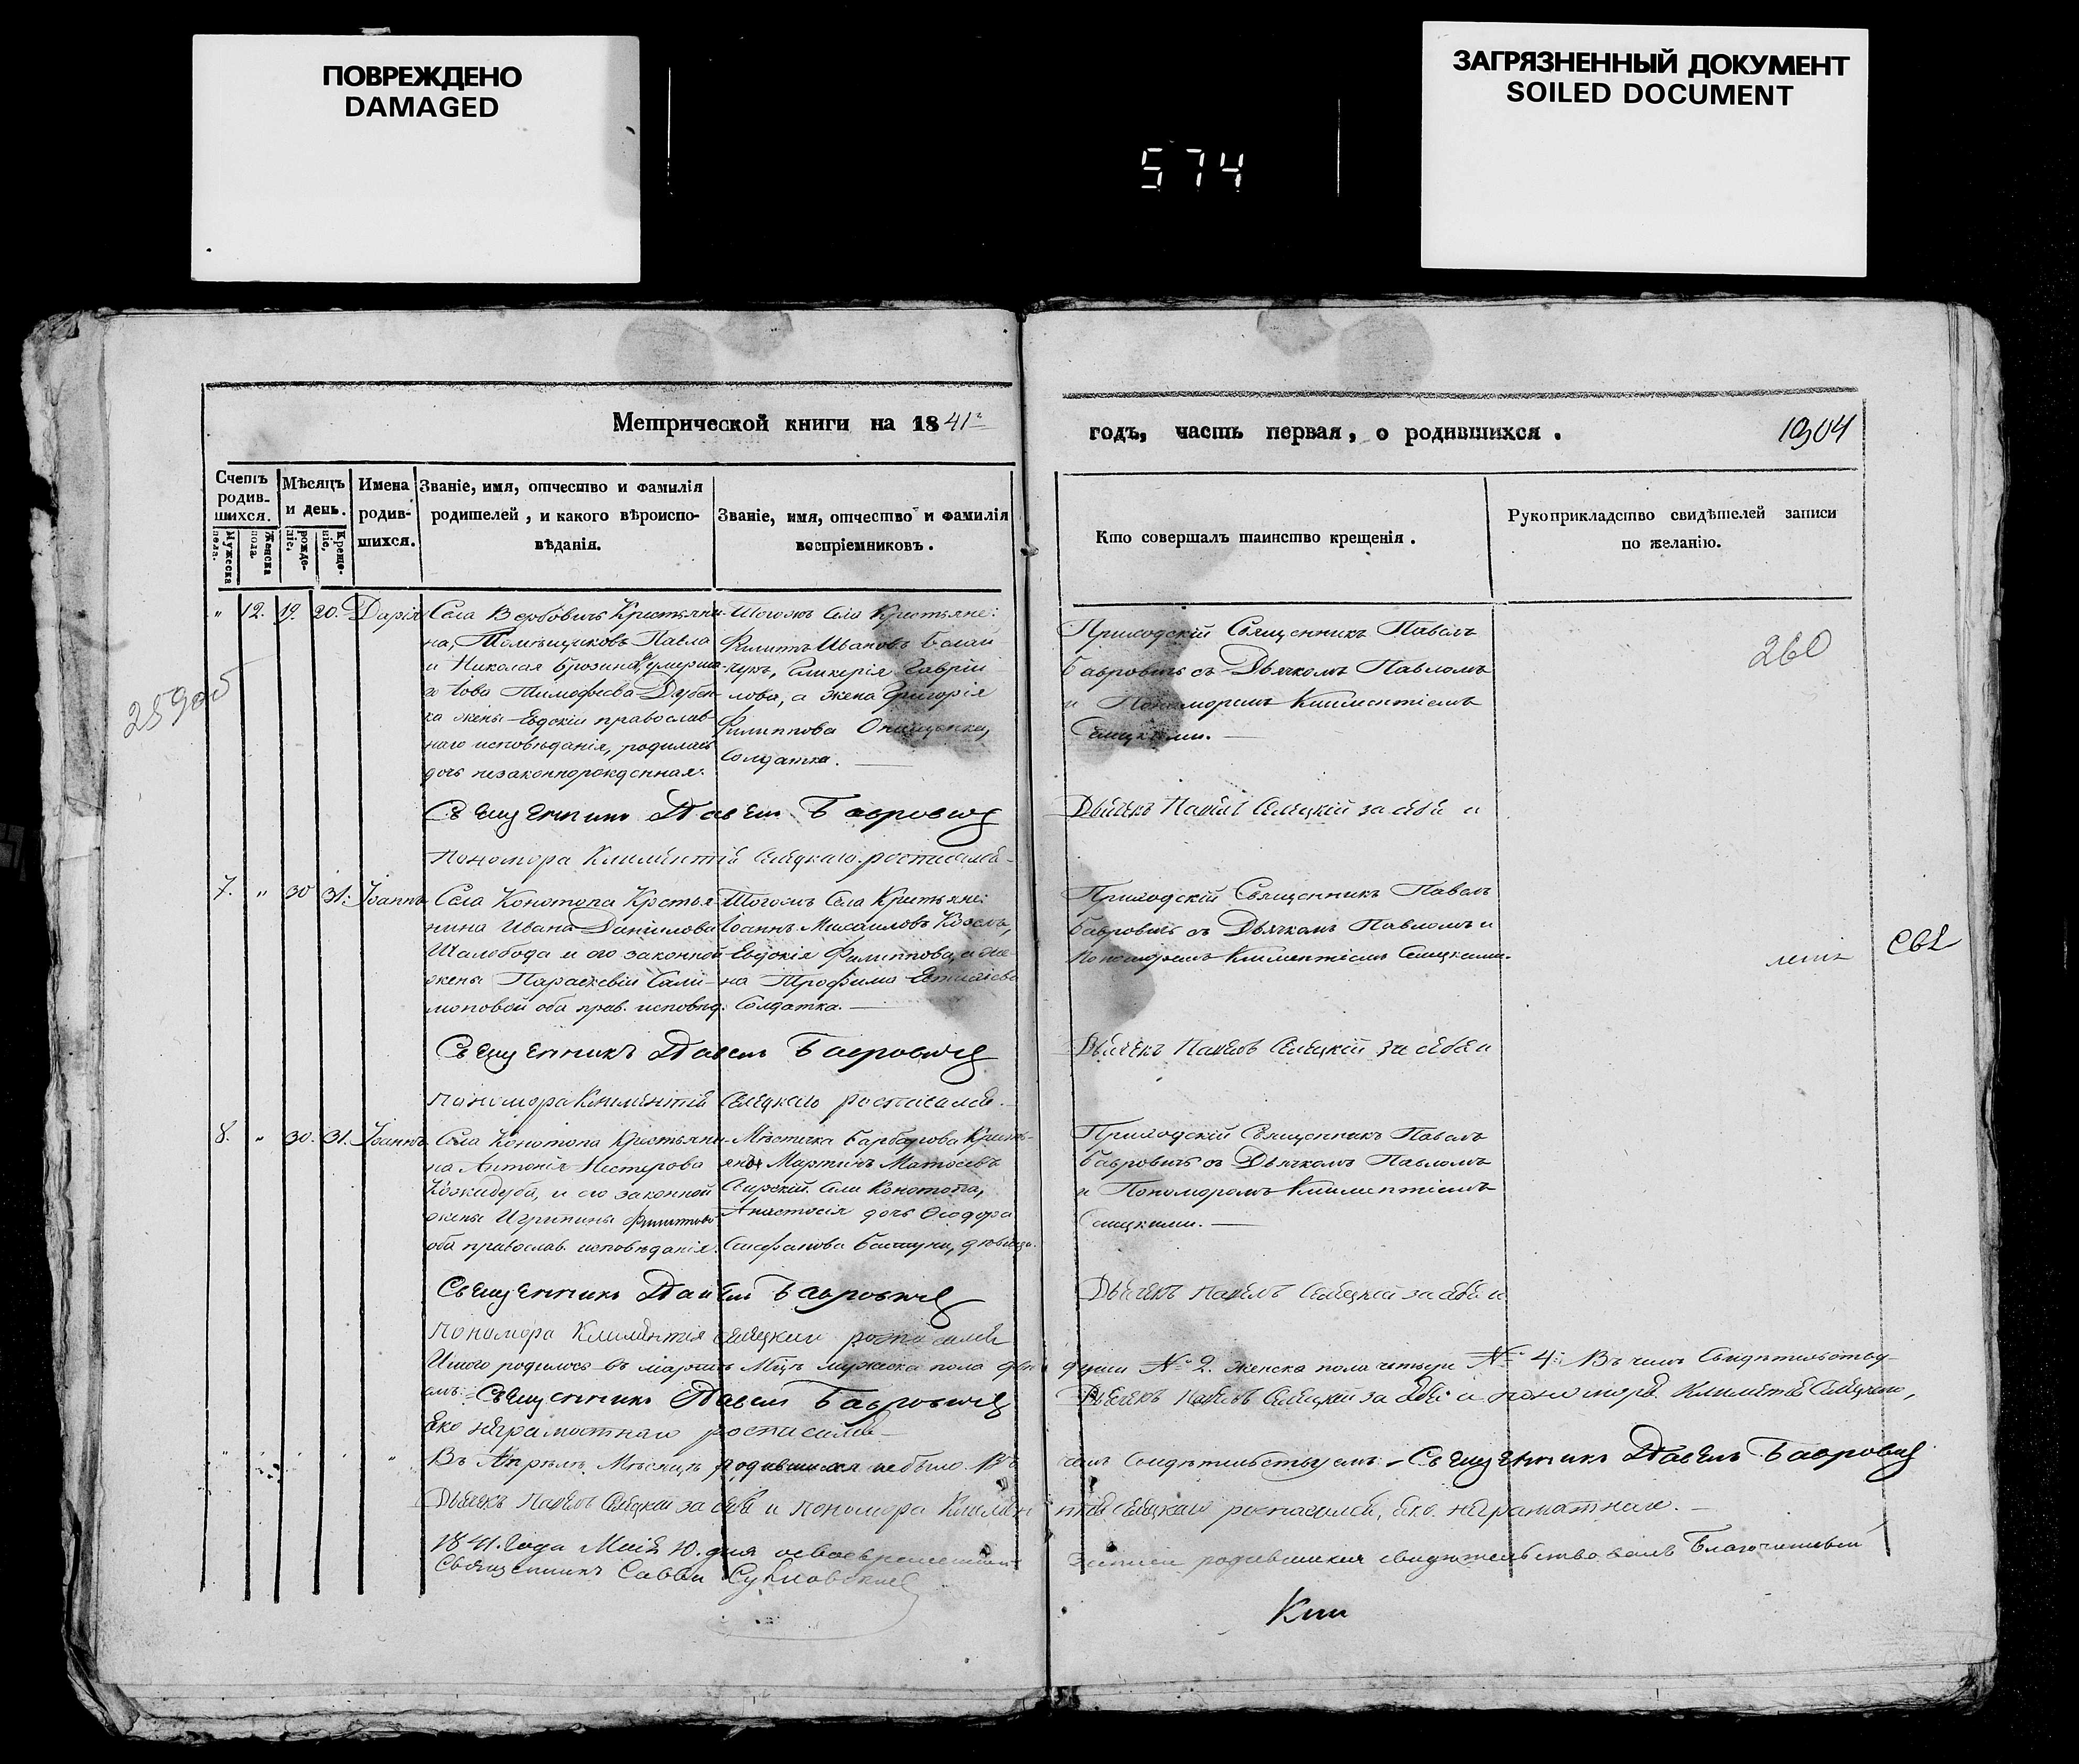 ПОВРЕЖДЕНО
DAMAGED
574
ЗАГРЯЗНЕННЫЙ ДОКУМЕНТ
SOILED DOCUMENT
Метрической книги на 1841
годъ, часть первая, о родившихся.
1904
Счетъ родив-шихся.
Мужеска пола.
Женска пола.
Мѣсяцъ и день.
рожде-ніе.
Креще-ніе.
Имена родив-шихся.
Званіе, имя, отчество и фамилія
родителей, и какого вѣроиспо-
вѣданія.
Званіе, имя, отчество и фамилія
воспріемниковъ.
Кто совершалъ таинство крещенія.
Рукоприкладство свидѣтелей записи
по желанію.
259 об
260
" 12. 19. 20. Дарія
Села Вербовичъ Крестьяни-
на, Помѣщиковъ Павла
и Николая умерша-
го Іова Тимофеева
ка жены Евдокіи православ-
наго исповѣданія, родилась
дочь незаконнорожденная.
Тогожъ Села Крестьяне:
Филипъ Ивановъ
Гликерія Гаврии-
лова, а жена Григорія
Филиппова Онищенка,
Солдатка.
Приходскій Священникъ Павелъ
Бавровичъ съ Дьячкомъ Павломъ
и Пономоремъ Климентіемъ
Селицкими.
Священникъ Павелъ Бавровичъ
Дьячекъ Павелъ Селецкій за себя и
пономора Климентія Селецкаго росписался
7. " 30 31. Іоаннъ
Села Конотопа Крестья-
нина Ивана Даніилова
Шалобода и его законной
жены Параскевіи Сали-
моновой оба прав. исповѣд.
Тогожъ Села Крестьяне:
Іоаннъ Мисаиловъ Козелъ,
Евдокія Филиппова, а же-
на Трофима
Солдатка.
Приходскій Священникъ Павелъ
Бавровичъ съ Дьячкомъ Павломъ и
Пономоремъ Климентіемъ Селицкими.
Священникъ Павелъ Бавровичъ
Дьячекъ Павелъ Селецкій за себя и
пономора Климентія Селецкаго росписался.
8. " 30. 31. Іоаннъ
Села Конотопа Крестьяни-
на Антонія Нестерова
Кожидуба, и его законной
жены Игрипины Филиппово
оба православ. исповѣданія.
Мѣстечка Барбарова Кресть-
янинъ Мартинъ Матѳеевъ
Села Конотопа,
Анастасія дочь Ѳеодора
Стефанова дѣвица.
Приходскій Священникъ Павелъ
Бавровичъ съ Дьячкомъ Павломъ
и Пономоремъ Климентіемъ
Селицкими.
Священникъ Павелъ Бавровичъ
Дьячекъ Павелъ Селецкій за себя и
пономора Климентія Селецкаго росписался
Итого родилось въ мартѣ Мцѣ мужеска пола двѣ души № 2. женска пола четыре № 4: Въ чемъ Свидѣтельству-
емъ: Священникъ Павелъ Бавровичъ
Дьячекъ Павелъ Селецкій за себя и пономора Климентія Селецкаго,
яко неграмотнаго росписался
Въ Апрѣлѣ Мѣсяцѣ родившихся не было. Въ чемъ Свидѣтельствуемъ Священникъ Павелъ Бавровичъ
Дьячекъ Павелъ Селецкій за себя и пономора Климентія Селецкаго росписался, яко неграмотнаго.
1841. Года Маія 10. дня освоевременной записи родившихся свидѣтельствовалъ Благочинный
Священникъ Савва